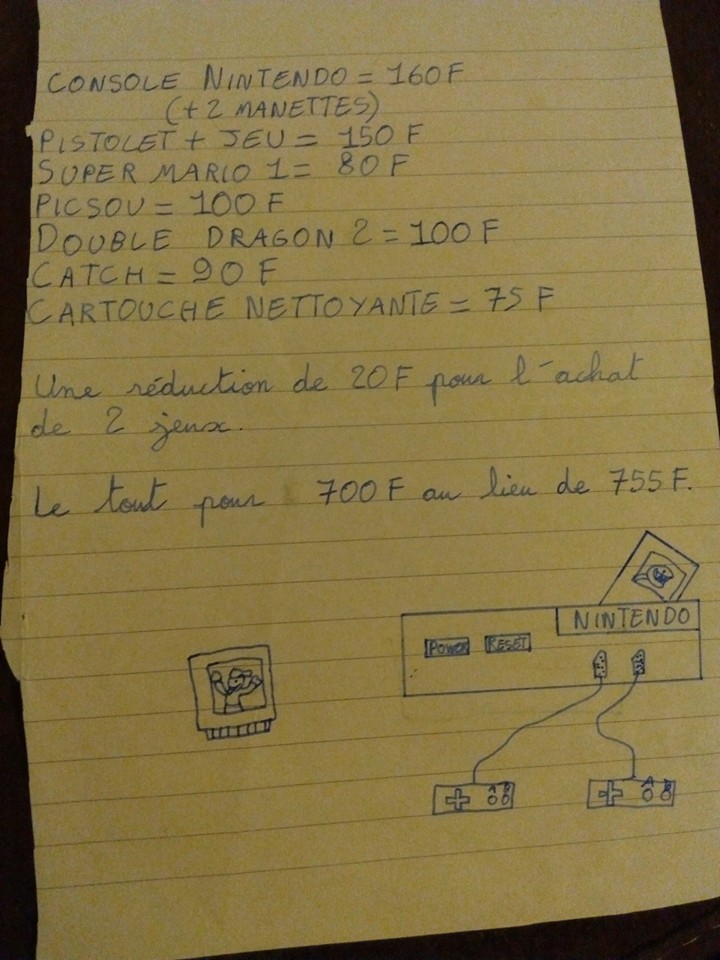 CONSOLE NINTENDO = 160F
(+2 MANETTES)
PISTOLET + JEU = 150 F
SUPER MARIO 1 = 80F
PICSOU = 100 F
DOUBLE DRAGON 2 = 100 F
CATCH = 90 F
CARTOUCHE NETTOYANTE = 75 F
Une réduction de 20F pour l'achat
de 2 jeux.
Le tout pour 700F au lieu de 755F.
NINTENDO
POWER RESET
A B
A B